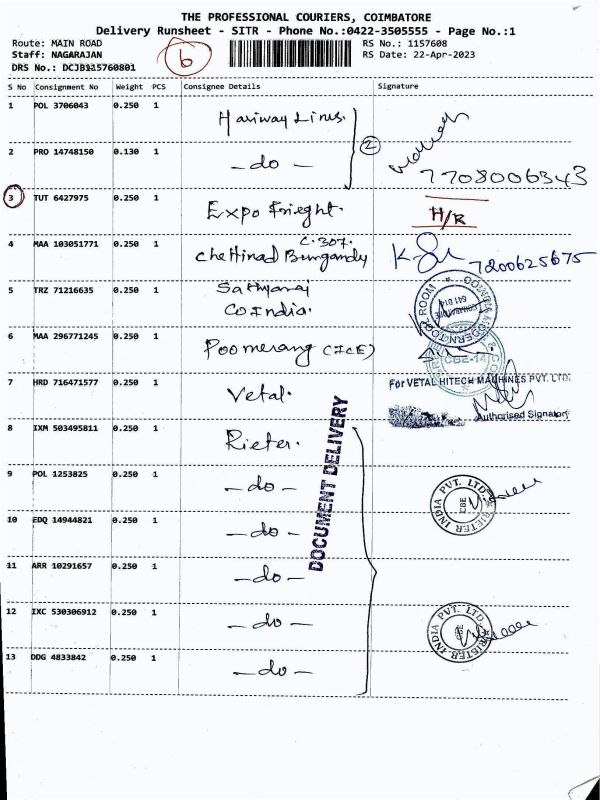 THE PROFESSIONAL COURIERS, COIMBATORE
Delivery Runsheet - SITR - Phone No.:0422-3505555 - Page No.:1
Route: MAIN ROAD
Staff: NAGARAJAN
DRS No.: DCJB115760801
6
RS No.: 1157608
RS Date: 22-Apr-2023
S No Consignment No Weight PCS Consignee Details Signature
1 POL 3706043 0.250 1 Hariway Lines.
2 PRO 14748150 0.130 1 - do - 2 7708006343
3 TUT 6427975 0.250 1 Expo Frieght. H/R
4 MAA 103051771 0.250 1 C.307. Chettinad Burgandy 7200625675
5 TRZ 71216635 0.250 1 Sathyaraj
CoIndia.
6 MAA 296771245 0.250 1 Poomerang (ICE)
TOOL ROOM
CBE-14
7 HRD 716471577 0.250 1 Vetal.
For VETAL HITECH MACHINES PVT. LTD.
Authorised Signatory
8 IXM 503495811 0.250 1 Rieter.
DOCUMENT DELIVERY
9 POL 1253825 0.250 1 - do -
RIETER INDIA PVT. LTD. CBE
10 EDQ 14944821 0.250 1 - do -
11 ARR 10291657 0.250 1 - do -
12 IXC 530306912 0.250 1 - do -
RIETER INDIA PVT. LTD. CBE
13 DDG 4833842 0.250 1 - do -